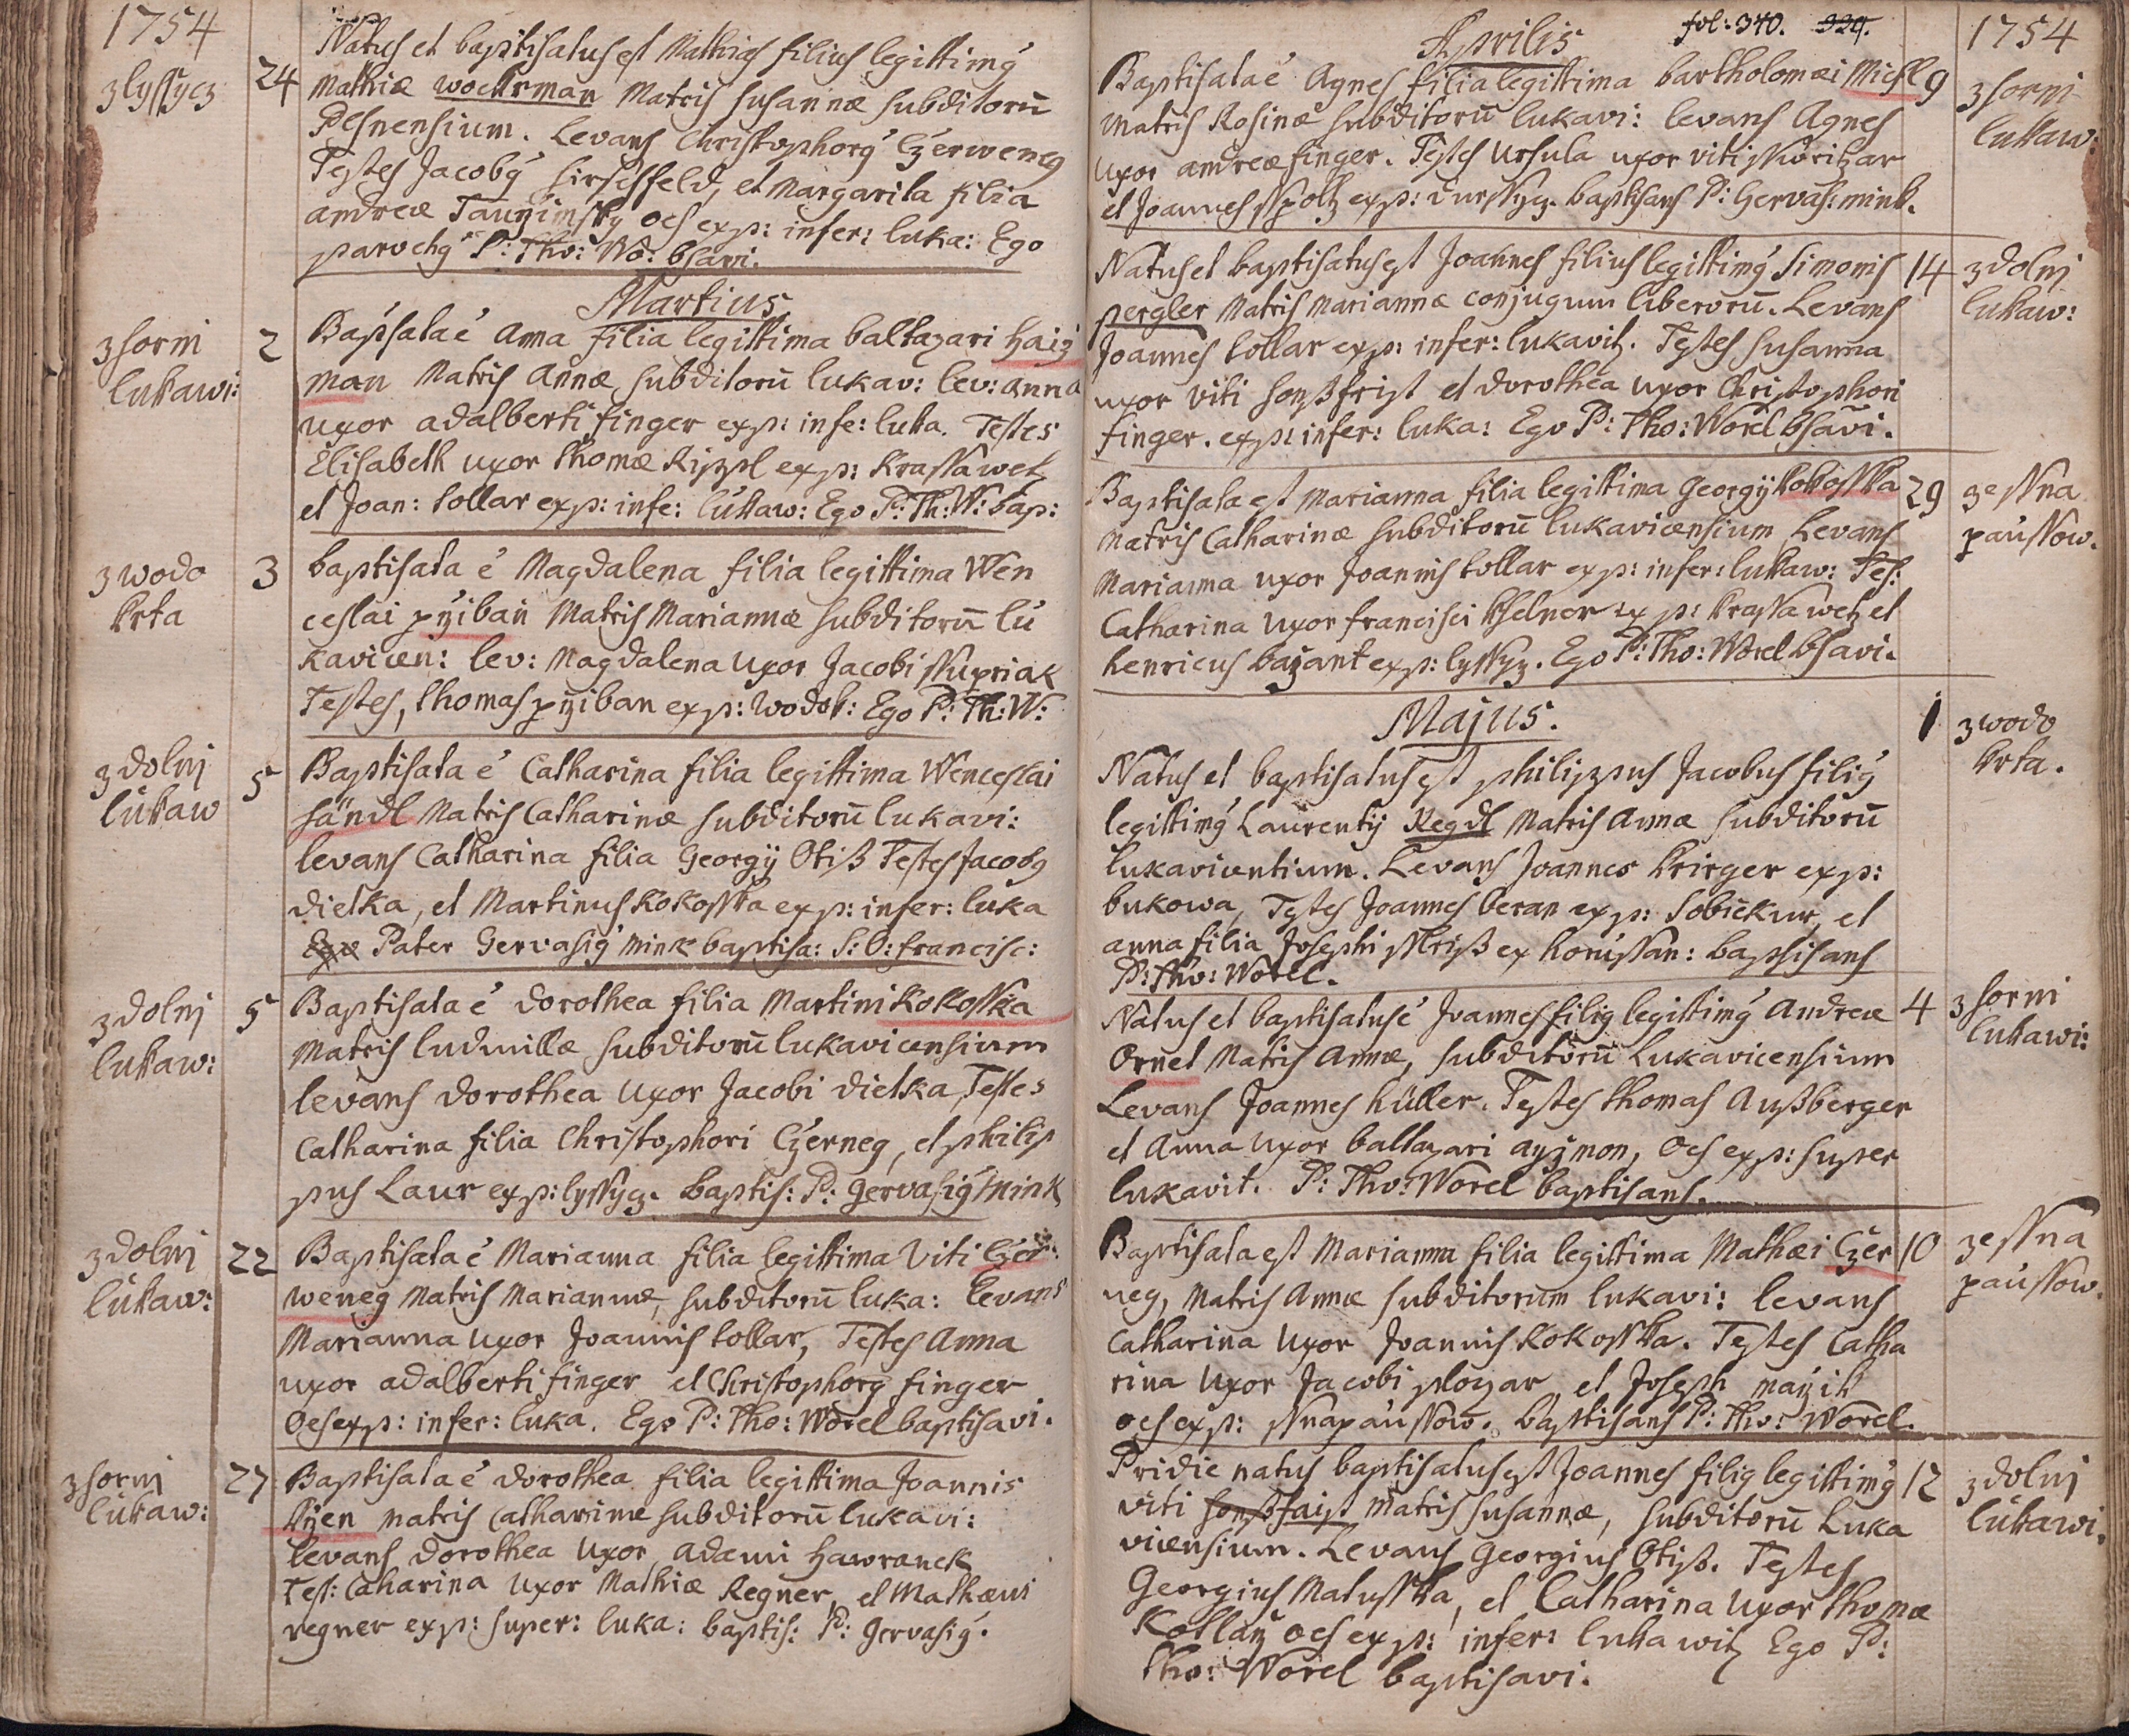 1754
z lyssycz
24
Natus et baptisatus est Mathias filius legittimq
Mathiæ wockrman Matris Susannæ subditorū
Plsnensium. Levans Christophorq Czerweneg
Testes Jacobq Hirschfeld, et Margarita filia
andreæ oēs exp: infer: luka: Ego
parochq P: Tho: Wo: bsavi.
Martius
z horni
lukawi:
2
Bapsata ē Anna filia legittima baltazari Haiz
man Matris Annæ, subditorū lukav: lev: anna
uxor adalberti finger exp: infe: luka. Testes
Elisabeth uxor thomæ Rippl exp: Krassawetz
et Joan: tollar exp: infe: lukaw: Ego P: Th: W: bap:
z wodo
krta
3
baptisata ē Magdalena filia legittima Wen
ceslai pziban Matris Mariannæ subditorū lu
kavicen: lev: Magdalena uxor Jacobi sskupriak
Testes, thomas pziban exp: wodok: Ego P: Th: W:
z dolnj
lukaw
5
Baptisata ē Catharina filia legittima Wenceslai
händl Matris Catharinæ subditorū lukavi:
levans Catharina filia Georgij Otiß Testes Jacobq
dietka, et Martinus Kokosska exp: infer: luka
Ego Pater Gervasiq Mink baptisa: S: O: francisc:
z dolnj
lukaw:
5
Baptisata ē dorothea filia Martini Kokosska
Matris ludmillæ subditorū lukavicensium
levans dorothea uxor Jacobi dietka, Testes
Catharina filia Christophori Czerneg, et philip
pus Laur exp: lyssycz. baptis: P: Gervasiq Mink
z dolnj
lukaw:
22
Baptisata ē Marianna filia legittima Viti Czer:
weneg Matris Mariannæ, subditorū luka: levans
Marianna uxor Joannis tollar, Testes Anna
uxor adalberti finger et Christophorq finger
Oēs exp: infer: luka. Ego P: Tho: Worel baptisavi.
z horni
lukaw:
27
Baptisata ē dorothea filia legittima Joannis
Kzen matris Catharinæ subditorū lukavi:
levans dorothea uxor adami Hawranek
Test: Catharina uxor Mathiæ Regner, et Mathæus
regner exp: super: luka: baptis: P: Gervasiq.
fol: 340. 329.
1754
Aprilis
Baptisata ē Agnes filia legittima bartholomæi Michl
9
z horni
lukaw:
Matris Rosinæ subditorū lukavi: levans Agnes
uxor andreæ finger. Testes Ursula uxor viti
et Joannes exp: baptisans P: Gervas: mink.
Natus et baptisatus est Joannes filius legittimq Simonis
14
z dolnj
lukaw:
pergler Matris Mariannæ conjugum liberorū. Levans
Joannes tollar exp: infer: lukavitz. Testes Susanna
uxor viti honßfrist et dorothea uxor Christophori
finger. exp: infer: luka: Ego P: Tho: Worel bsavi.
Baptisata est Marianna filia legittima Georgij kokosska
29
ze ssna
paussow.
Matris Catharinæ subditorū lukavicensium Levans
Marianna uxor Joannis tollar exp: infer: lukaw: Tes:
Catharina uxor francisci kselner exp: krassawetz et
henricus bazant exp: lyssycz. Ego P: Tho: Worel bsavi.
Majus.
1
z wodo
krta.
Natus et baptisatus est philippus Jacobus filiq
legittimq Laurentij Regdl Matris Annæ subditorū
lukavicentium. Levans Joannes krirger exp:
bukowa, Testes Joannes beran exp: Sobiekur, et
anna filia Josephi ex horussan: baptisans
P: Tho: Worel.
Natus et baptisatus ē Joannes filiq legittimq Andreæ
4
z horni
lukawi:
Ornet Matris Annæ, subditorū Lukavicensium
Levans Joannes hüller. Testes thomas Außberger
et Anna uxor baltazari ayzmon, Oēs exp: super
lukavit. P: Tho: Worel baptisans.
Baptisata est Marianna filia legittima Mathæi Czer
10
ze ssna
paussow.
neg, Matris Annæ subditorum lukavi: levans
Catharina uxor Joannis Kokosska. Testes Catha
rina uxor Jacobi plozar et Joseph mazik
oēs exp: ssnapaussow. baptisans P: Tho: Worel.
Pridie natus baptisatus est Joannes filiq legittimq
12
z dolnj
lukawi.
viti honßfaist Matris Susannæ, subditorū Luka
vicensium. Levans Georgius Otiß. Testes
Georgius Matusska, et Catharina uxor thomæ
Kollarz oēs exp: infer: lukawitz Ego P:
Tho: Worel baptisavi.